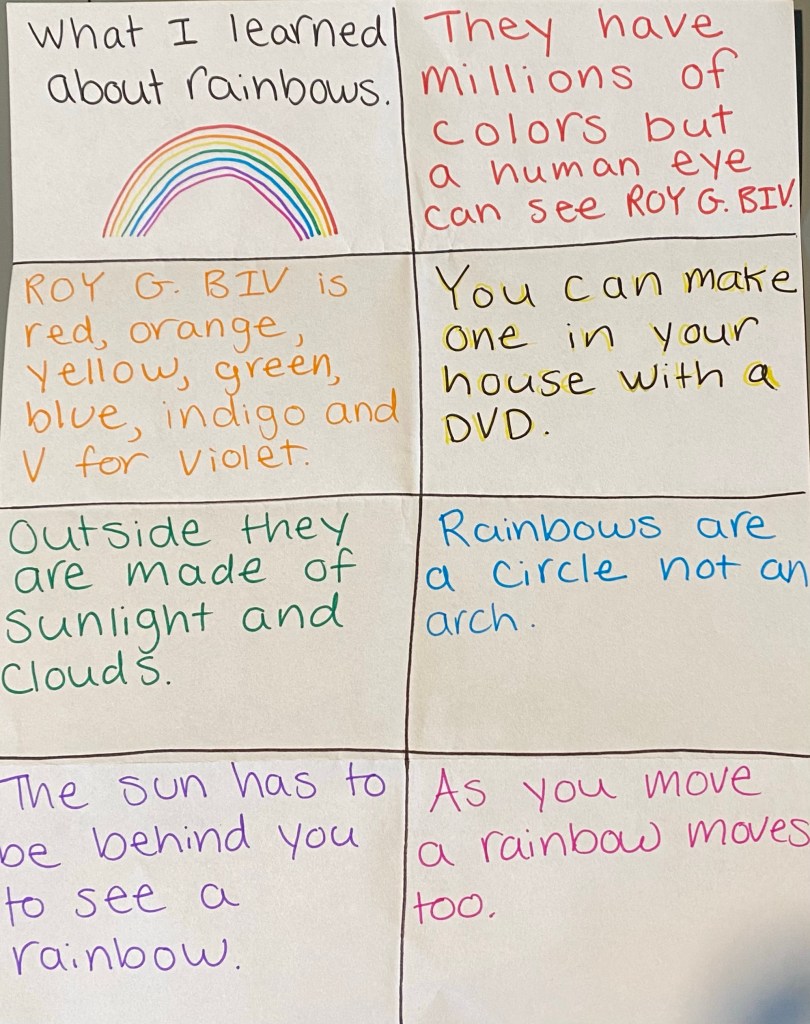 What I learned
about rainbows.
They have
millions of
colors but
a human eye
can see ROY G. BIV.
ROY G. BIV is
red, orange,
yellow, green,
blue, indigo and
V for violet.
You can make
one in your
house with a
DVD.
Outside they
are made of
sunlight and
clouds.
Rainbows are
a circle not an
arch.
The sun has to
be behind you
to see a
rainbow.
As you move
a rainbow moves
too.